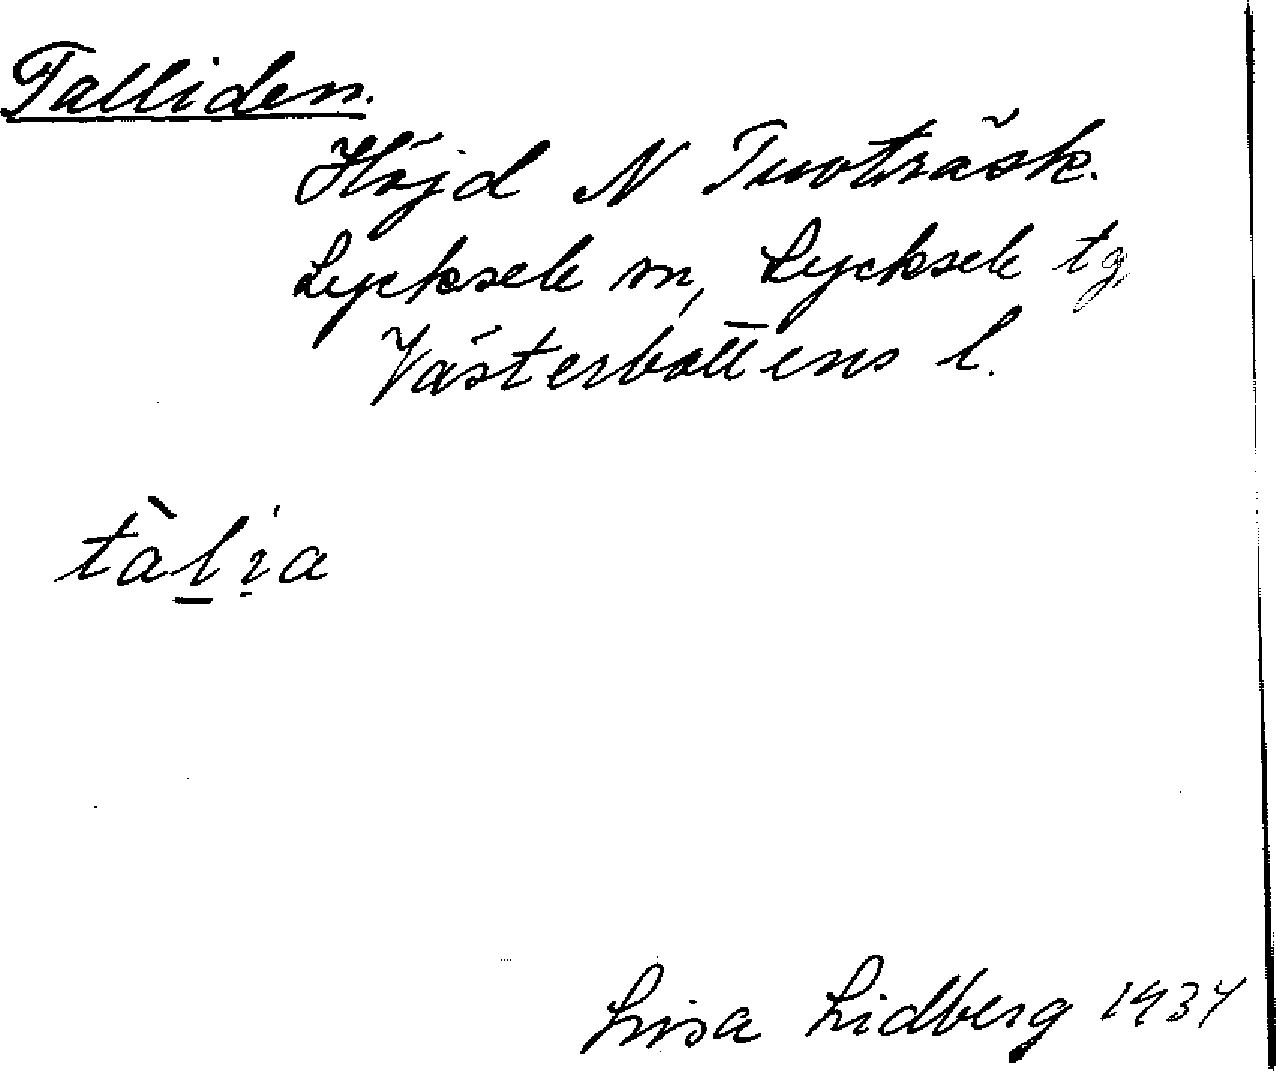 Talliden.
Höjd N Tuvträsk.
Lycksele sn, Lycksele tg,
Västerbottens l.
tàl̲i̤a
Lisa Lidberg 1934